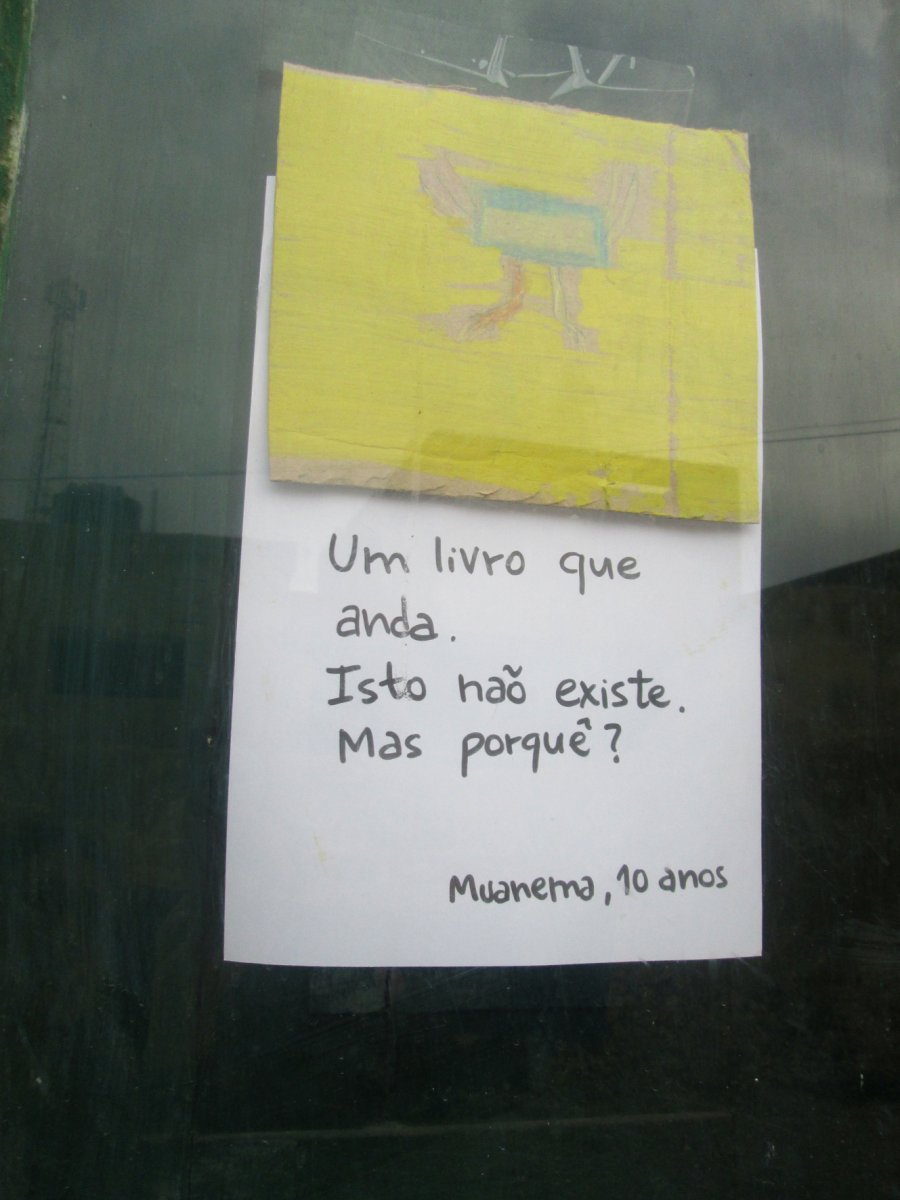 Um livro que
anda.
Isto não existe.
Mas porquê?
Muanema, 10 anos